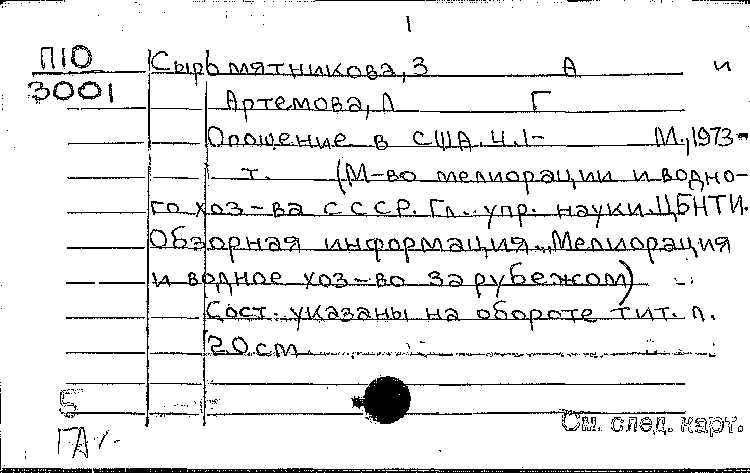 1
П10 Сыромятникова, З А и
3001 Артемова, Л Г
Орошение в США. Ч. 1- М., 1973-
т. (М-во мелиорации и водно-
го хоз-ва СССР. Гл. упр. науки. ЦБНТИ.
Обзорная информация. „Мелиорация
и водное хоз-во за рубежом)
Сост. указаны на обороте тит. л.
20 см
5
ГА
См. след. карт.